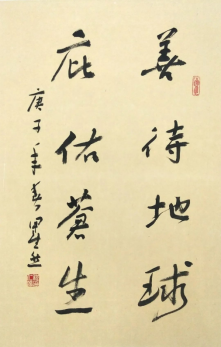 善待地球
庇佑苍生
庚子年春